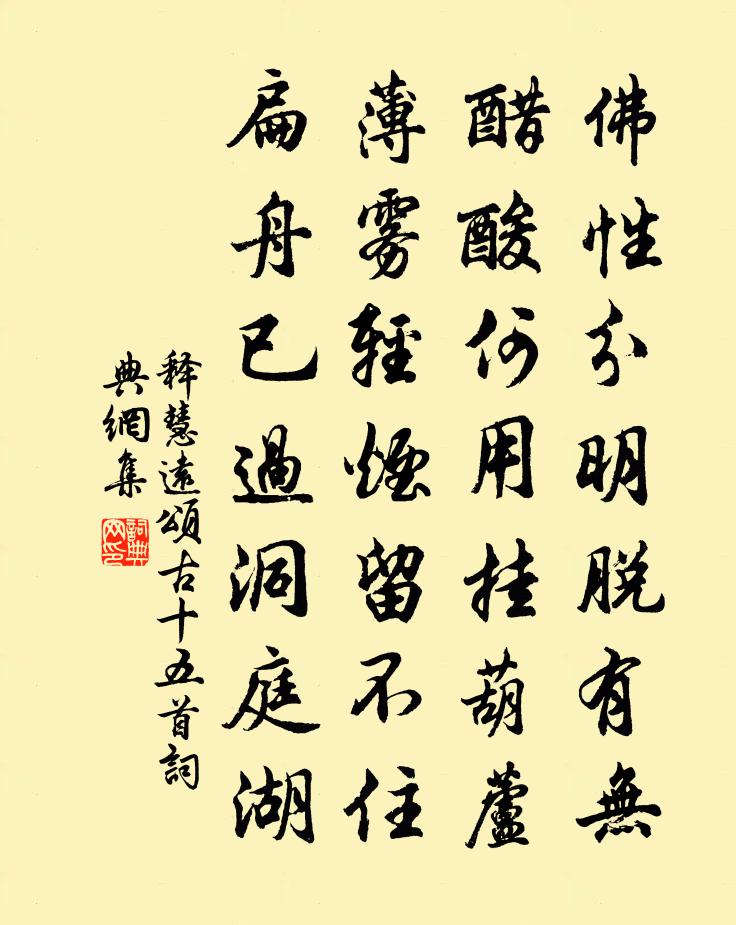 佛性分明脱有無
醋酸何用挂葫蘆
薄雾輕煙留不住
扁舟已過洞庭湖
释慧遠頌古十五首詞
典網集
詞典网印